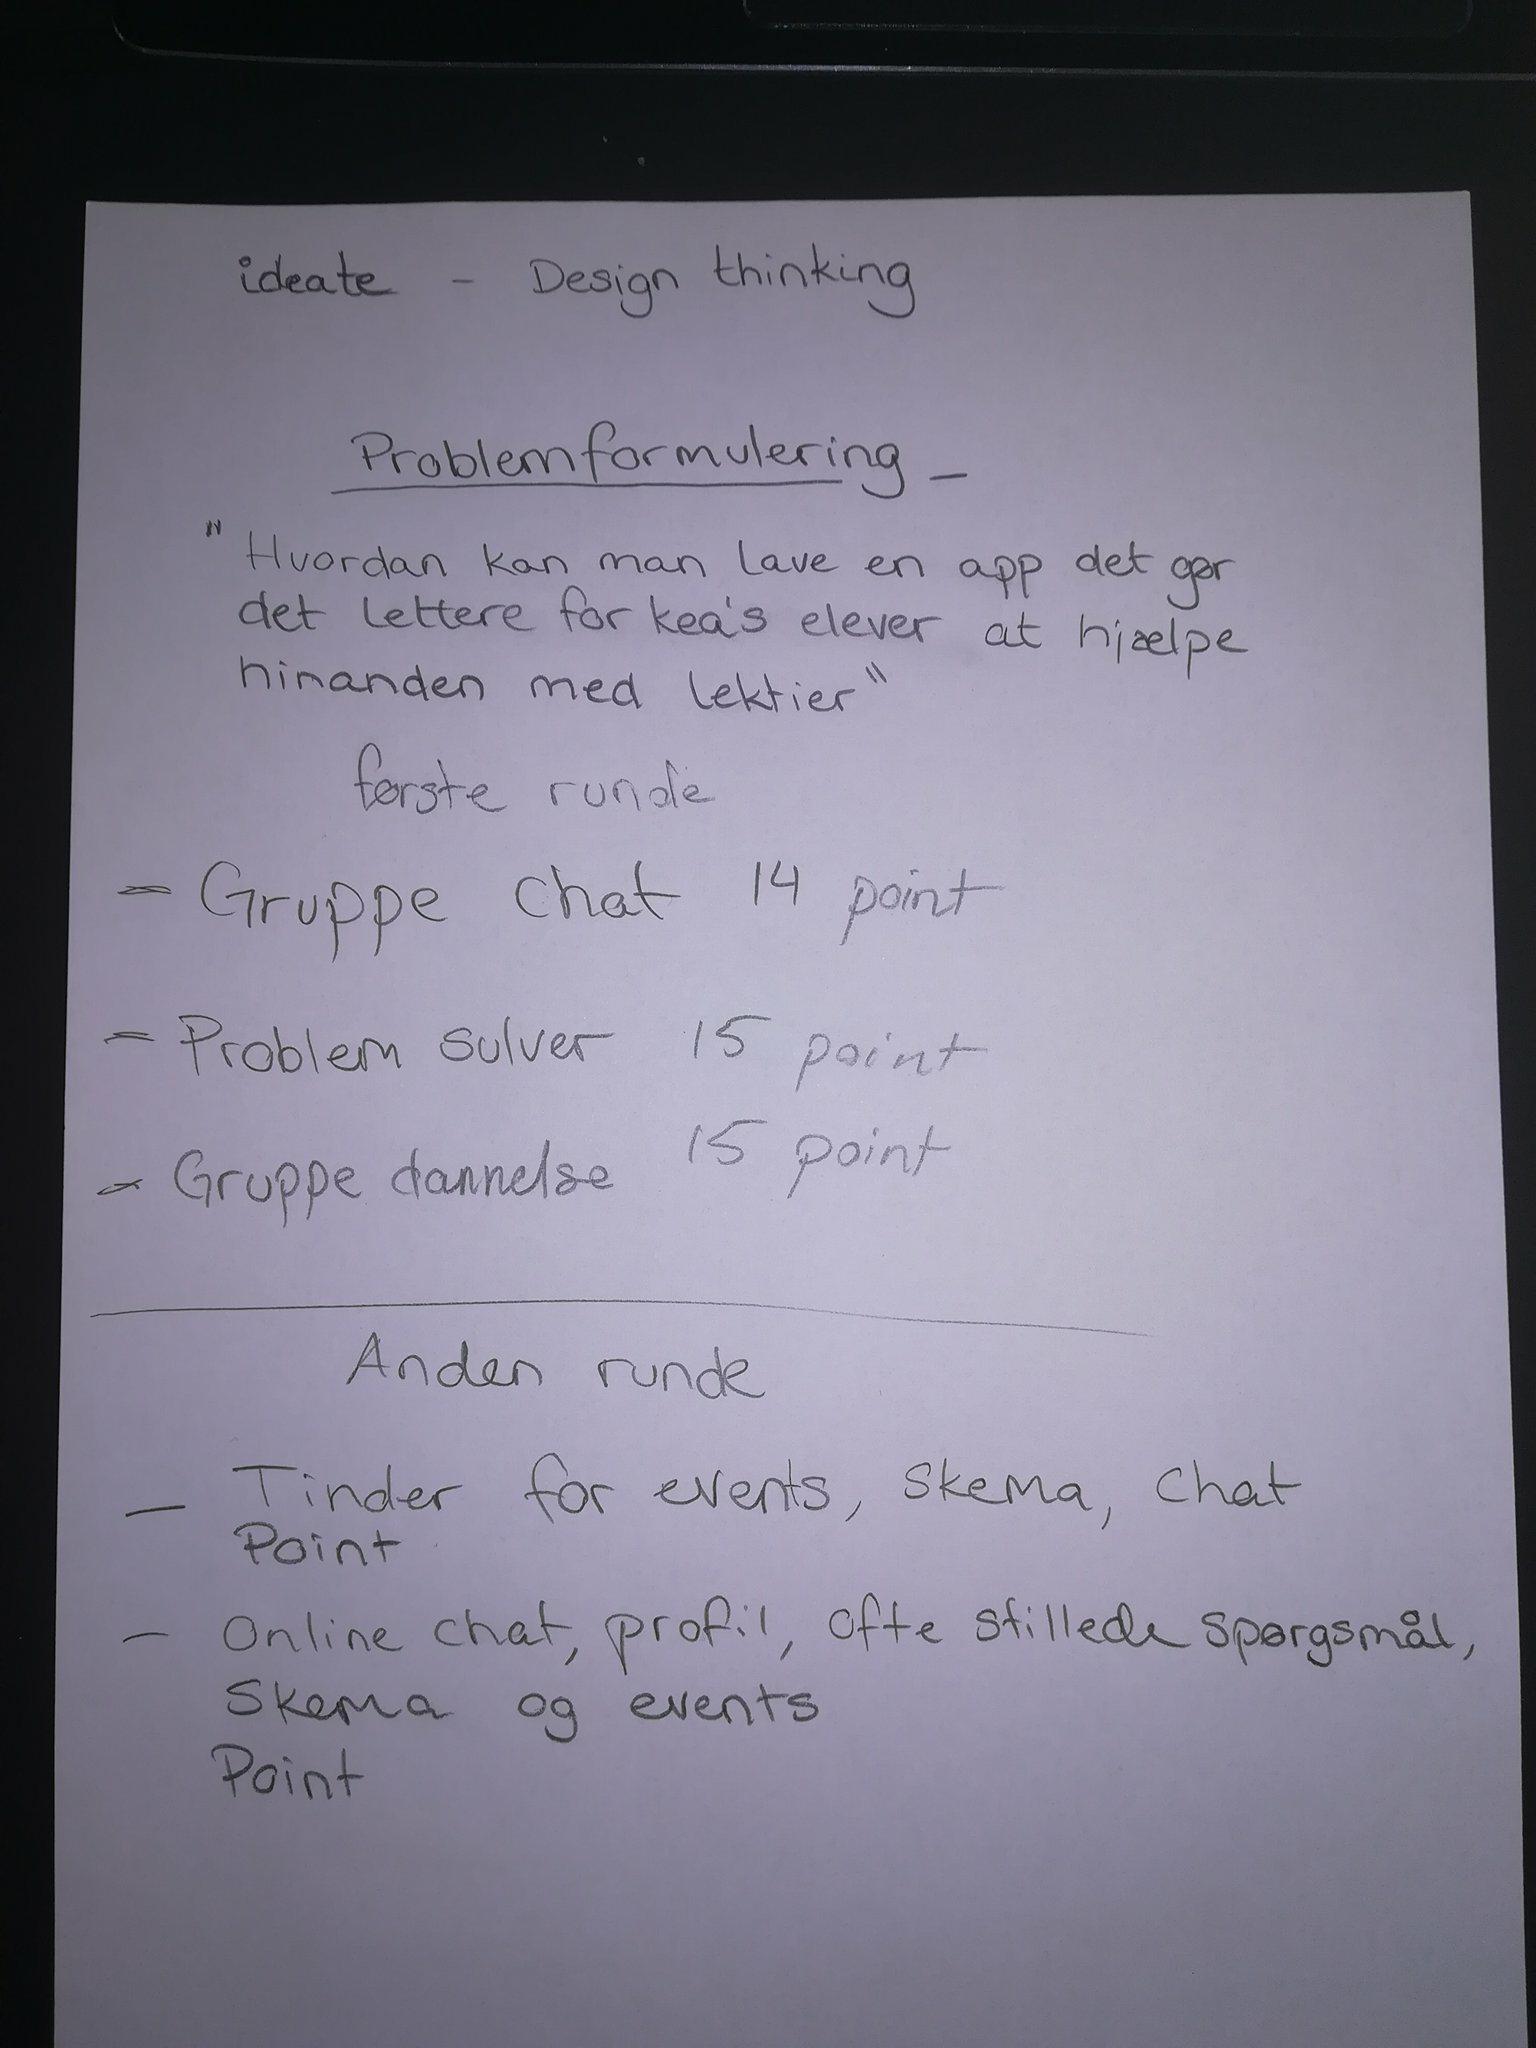 ideate - Design thinking
Problemformulering -
"Hvordan kan man lave en app det gør
det lettere for kea's elever at hjælpe
hinanden med lektier"
første runde
- Gruppe chat 14 point
- Problem sulver 15 point
- Gruppe dannelse 15 point
Anden runde
- Tinder for events, skema, chat
Point
- Online chat, profil, ofte stillede spørgsmål,
skema og events
Point